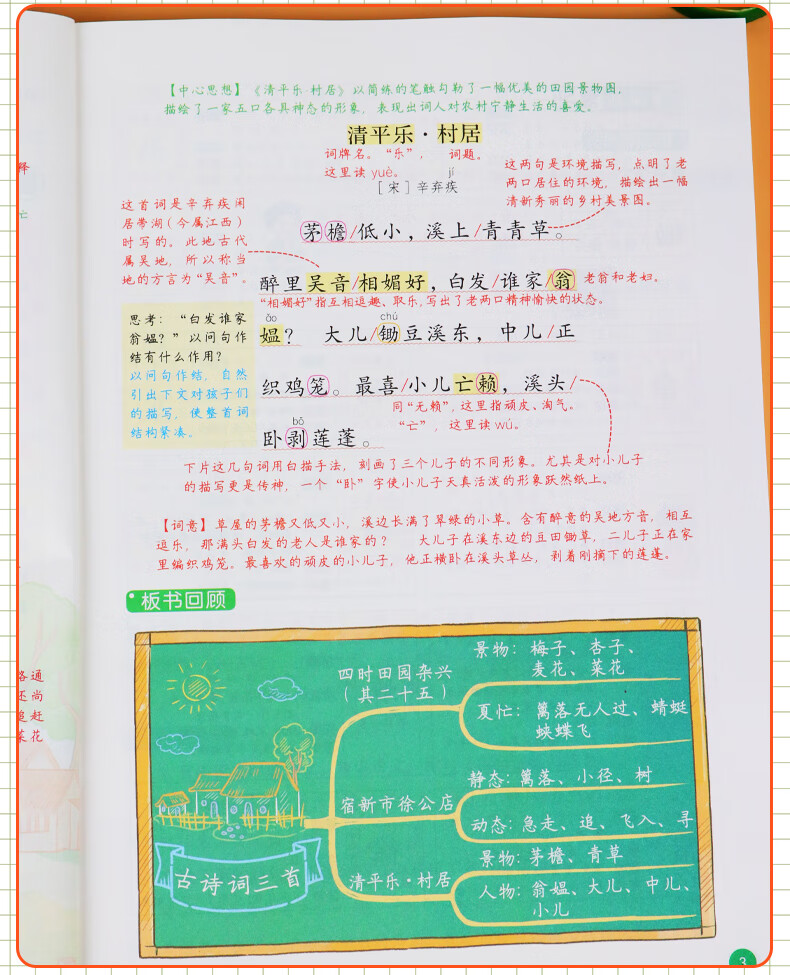 【中心思想】《清平乐·村居》以简练的笔触勾勒了一幅优美的田园景物图，
描绘了一家五口各具神态的形象，表现出词人对农村宁静生活的喜爱。
清平乐·村居
词牌名。“乐”，
这里读 yuè。
词题。
jí
[宋]辛弃疾
这两句是环境描写，点明了老
两口居住的环境，描绘出一幅
清新秀丽的乡村美景图。
这首词是辛弃疾闲
居带湖（今属江西）
时写的。此地古代
属吴地，所以称当
地的方言为“吴音”。
茅檐/低小，溪上/青青草。
醉里吴音/相媚好，白发/谁家/翁
老翁和老妇。
“相媚好”指互相逗趣、取乐，写出了老两口精神愉快的状态。
ǎo
chú
媪？ 大儿/锄豆溪东，中儿/正
思考：“白发谁家
翁媪？”以问句作
结有什么作用？
以问句作结，自然
引出下文对孩子们
的描写，使整首词
结构紧凑。
织鸡笼。最喜/小儿亡赖，溪头/
同“无赖”，这里指顽皮、淘气。
“亡”，这里读 wú。
bō
卧剥莲蓬。
下片这几句词用白描手法，刻画了三个儿子的不同形象。尤其是对小儿子
的描写更是传神，一个“卧”字使小儿子天真活泼的形象跃然纸上。
【词意】草屋的茅檐又低又小，溪边长满了翠绿的小草。含有醉意的吴地方音，相互
逗乐，那满头白发的老人是谁家的？ 大儿子在溪东边的豆田锄草，二儿子正在家
里编织鸡笼。最喜欢的顽皮的小儿子，他正横卧在溪头草丛，剥着刚摘下的莲蓬。
板书回顾
古诗词三首
四时田园杂兴
（其二十五）
景物：梅子、杏子、
麦花、菜花
夏忙：篱落无人过、蜻蜓
蛱蝶飞
宿新市徐公店
静态：篱落、小径、树
动态：急走、追、飞入、寻
清平乐·村居
景物：茅檐、青草
人物：翁媪、大儿、中儿、
小儿
释
亡
通
还尚
追赶
菜花
3